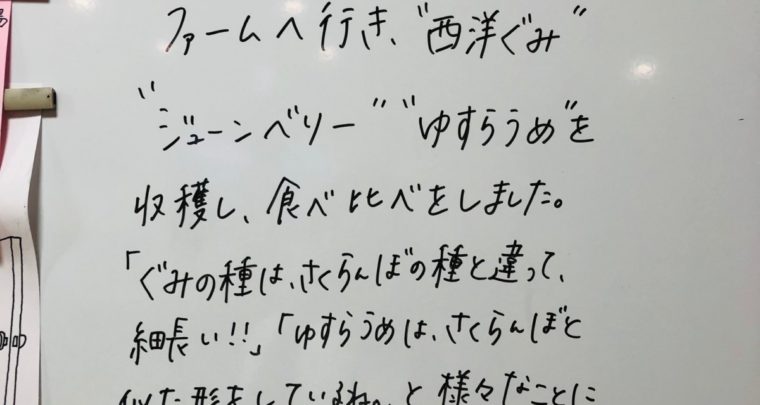 ファームへ行き、"西洋ぐみ"
"ジューンベリー" "ゆすらうめ"を
収穫し、食べ比べをしました。
「ぐみの種は、さくらんぼの種と違って、
細長い!!」「ゆすらうめは、さくらんぼと
似た形をしているね。と様々なことに